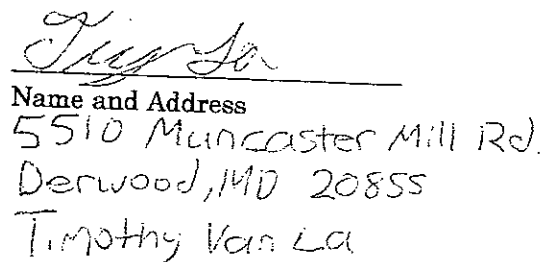 Name and Address
5510 Muncaster Mill Rd.
Derwood, MD 20855
Timothy Van La